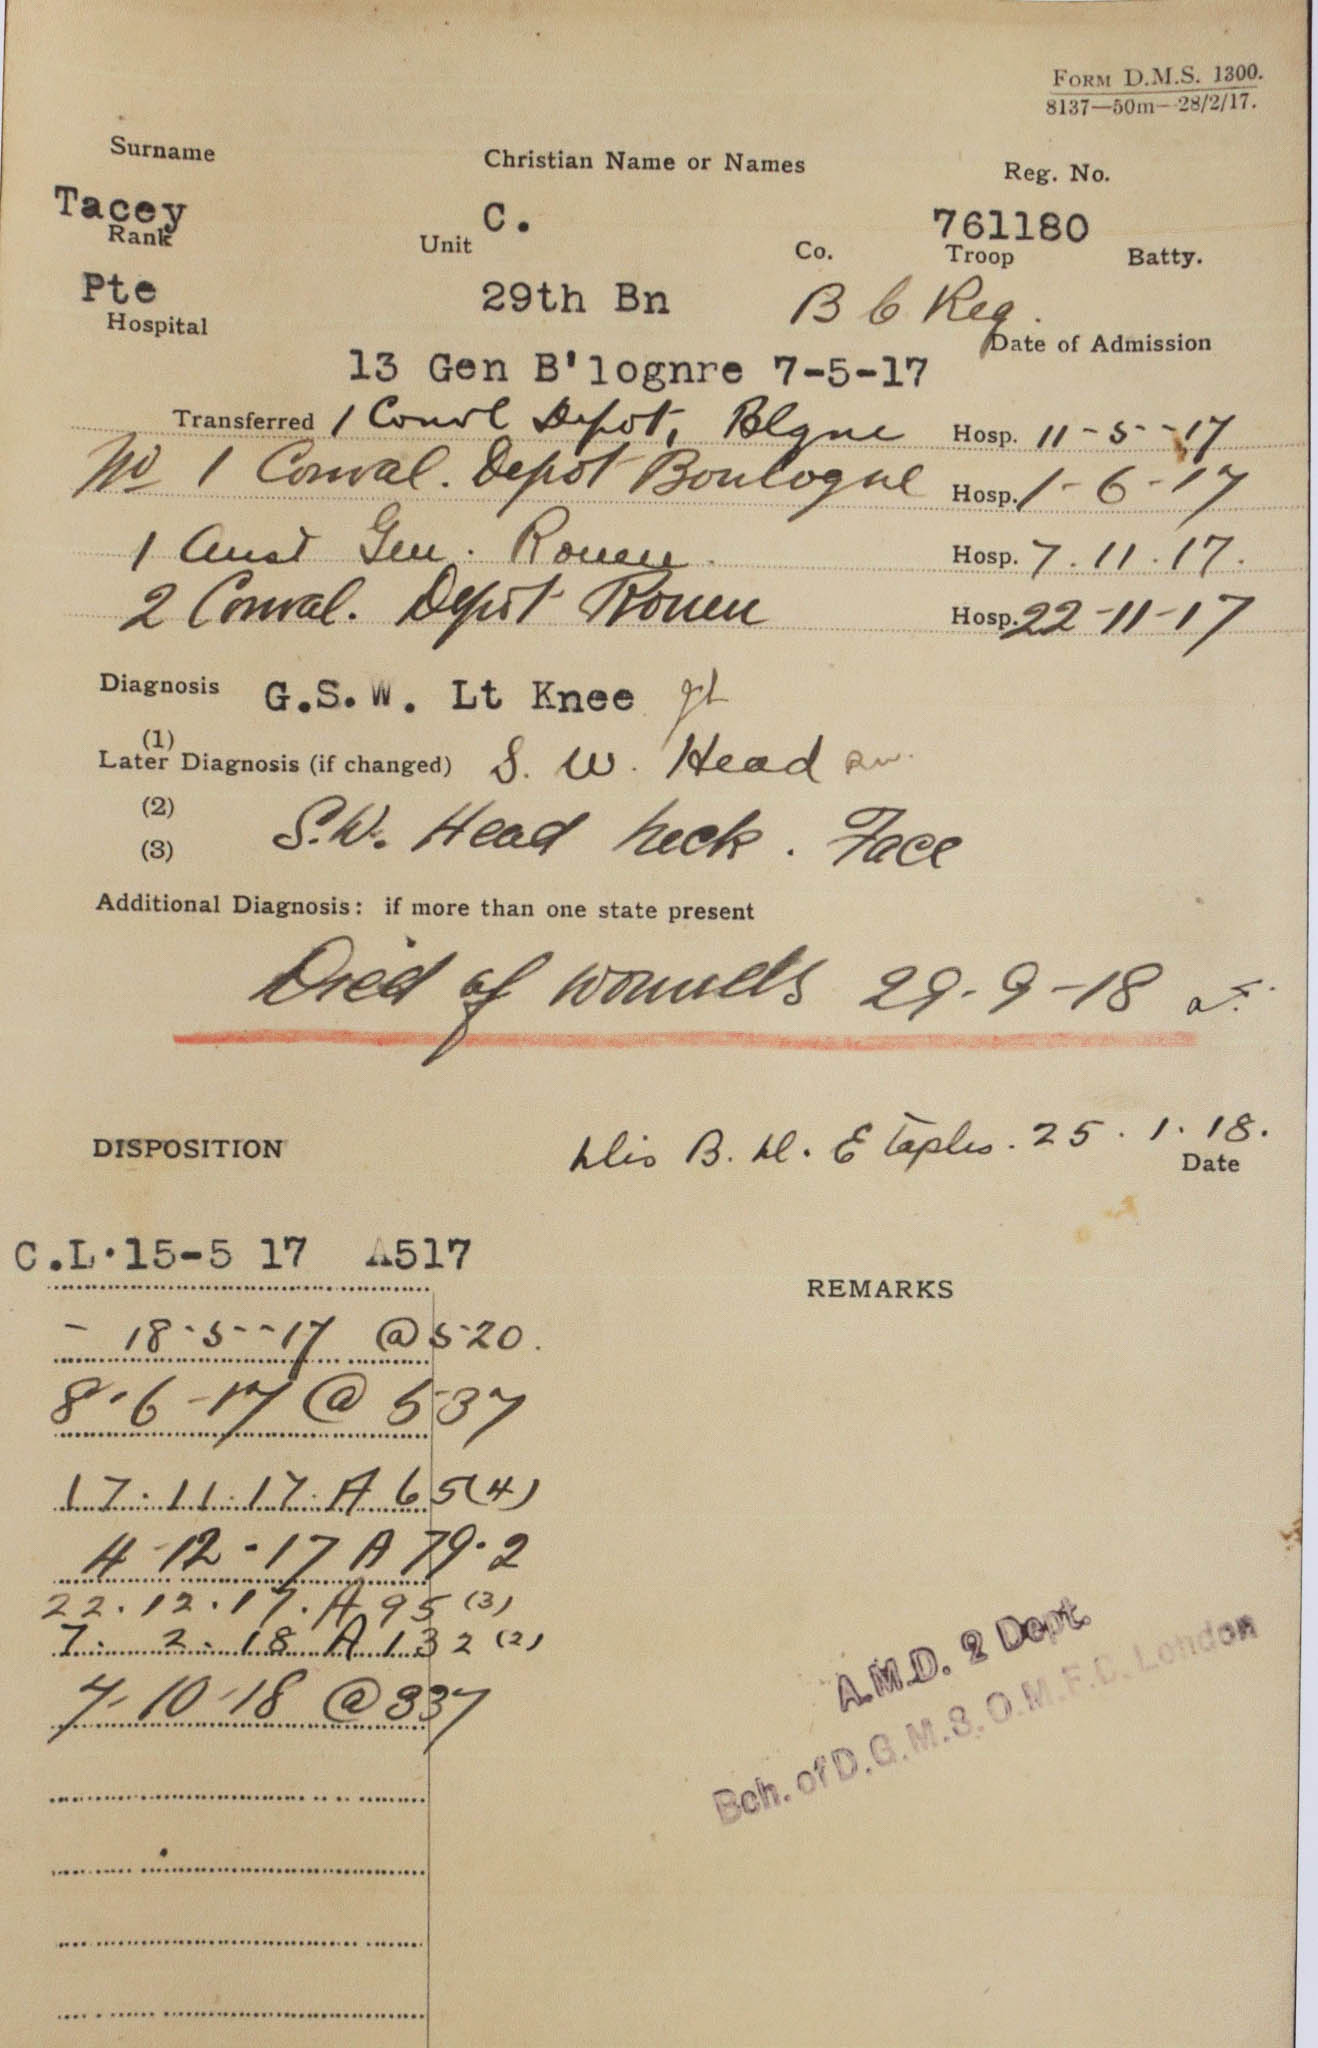 FORM D.M.S. 1300.
8137—50m—28/2/17.
Surname Christian Name or Names Reg. No.
Tacey C. 761180
Rank Unit Co. Troop Batty.
Pte 29th Bn B C Reg.
Hospital Date of Admission
13 Gen B'lognre 7-5-17
Transferred 1 Convl Depot, Blgne Hosp. 11-5-17
No 1 Conval. Depot Boulogne Hosp. 1-6-17
1 Aust Gen. Rouen. Hosp. 7.11.17.
2 Conval. Depot Rouen Hosp. 22-11-17
Diagnosis G.S.W. Lt Knee
(1)
Later Diagnosis (if changed) S. W. Head
(2)
S.W. Head neck. Face
(3)
Additional Diagnosis: if more than one state present
Died of wounds 29-9-18
Dis B. D. Etaples. 25.1.18.
DISPOSITION Date
C.L.15-5 17 A517
REMARKS
- 18-5-17 @520.
8-6-17 @ 537
17.11.17. A 65(4)
4-12-17 A 79.2
22.12.17. A 95 (3)
7. 2. 18 A 132 (2)
7-10-18 @337
A.M.D. 2 Dept.
Bch. of D.G.M.S. O.M.F.D. London